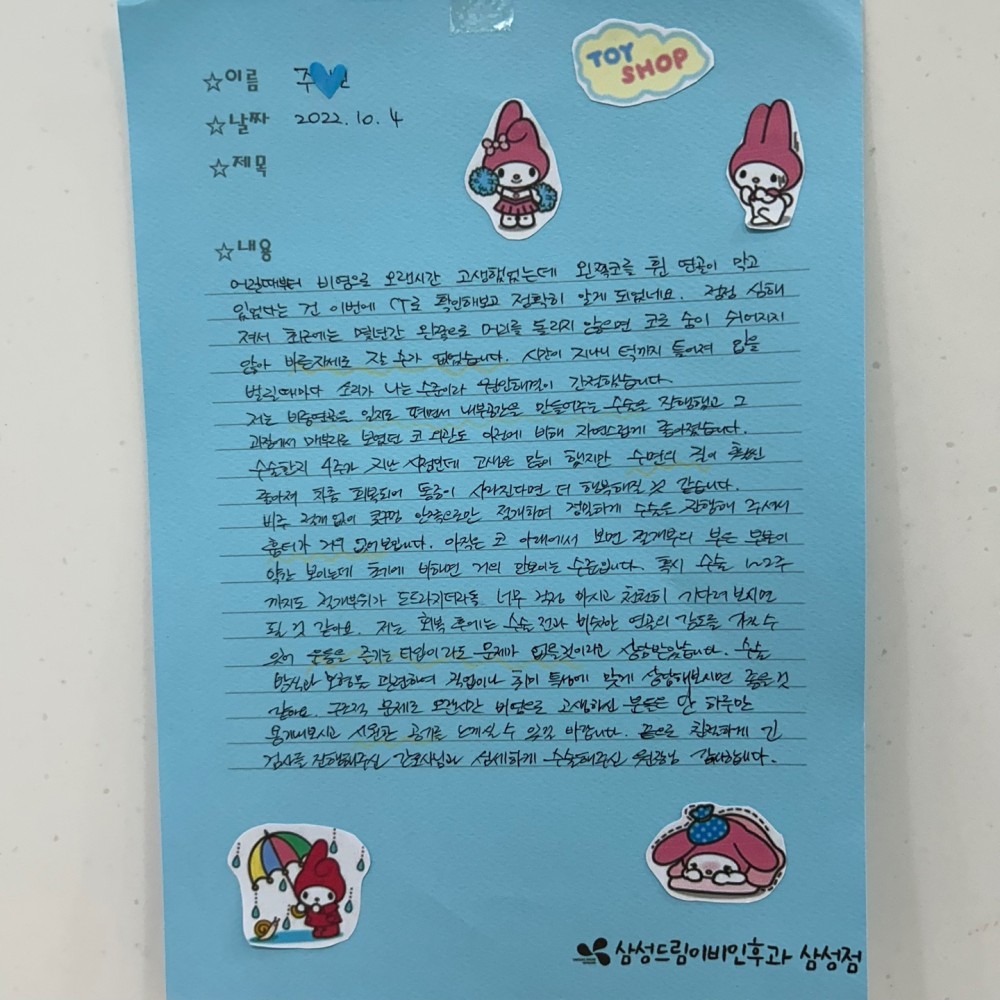 TOY
SHOP
☆이름 주
☆날짜 2022. 10. 4
☆제목
☆내용
어릴때부터 비염으로 오랜시간 고생했었는데 왼쪽코를 휜 연골이 막고
있었다는 건 이번에 CT로 확인해보고 정확히 알게 되었네요. 점점 심해
져서 최근에는 몇년간 왼쪽으로 머리를 돌리지 않으면 코로 숨이 쉬어지지
않아 바른자세로 잘 수가 없었습니다. 시간이 지나니 턱까지 틀어져 입을
벌릴때마다 소리가 나는 수준이라 원인해결이 간절했습니다.
저는 비중격연골을 일자로 펴면서 내부공간을 만들어주는 수술을 진행했고 그
과정에서 매부리로 보였던 코 외관도 이전에 비해 자연스럽게 좋아졌습니다.
수술한지 4주가 지난 시점인데 고생은 많이 했지만 수면의 질이 훨씬
좋아져 차츰 회복되어 통증이 사라진다면 더 행복해질 것 같습니다.
비주 절개 없이 콧구멍 안쪽으로만 절개하여 정밀하게 수술을 진행해 주셔서
흉터가 거의 없어보입니다. 아직은 코 아래에서 보면 절개부의 붉은 부분이
약간 보이는데 초기에 비하면 거의 안보이는 수준입니다. 혹시 수술 1~2주
까지도 절개부위가 도드라지더라도 너무 걱정 마시고 천천히 기다려 보시면
될 것 같아요. 저는 회복 후에는 수술 전과 비슷한 연골의 강도를 가질 수
있어 운동을 즐기는 타입이라도 문제가 없을것이라고 상담받았습니다. 수술
방식과 모양을 관련하여 직업이나 취미 특성에 맞게 상담해보시면 좋을 것
같아요. 구조적 문제로 오랜시간 비염으로 고생하신 분들은 안 하루만
용기내보시고 시원한 공기를 느끼실 수 있길 바랍니다. 끝으로 친절하게 긴
검사를 진행해주신 간호사님과 섬세하게 수술해주신 원장님 감사합니다.
삼성드림이비인후과 삼성점